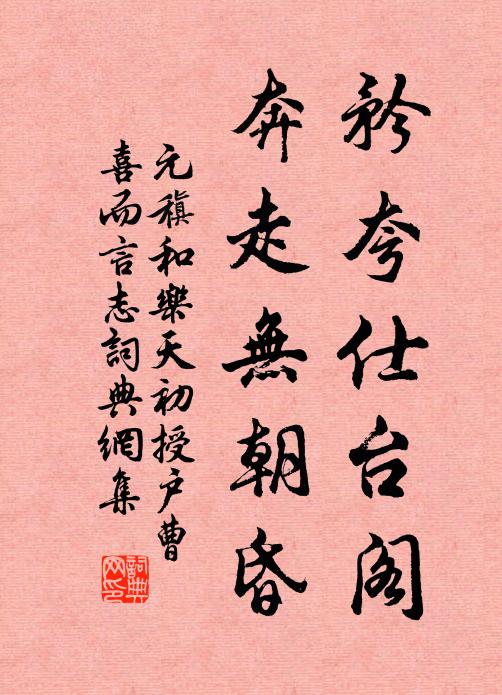 矜夸仕台阁
奔走無朝昏
元稹和樂天初授户曹
喜而言志詞典網集
詞典网印